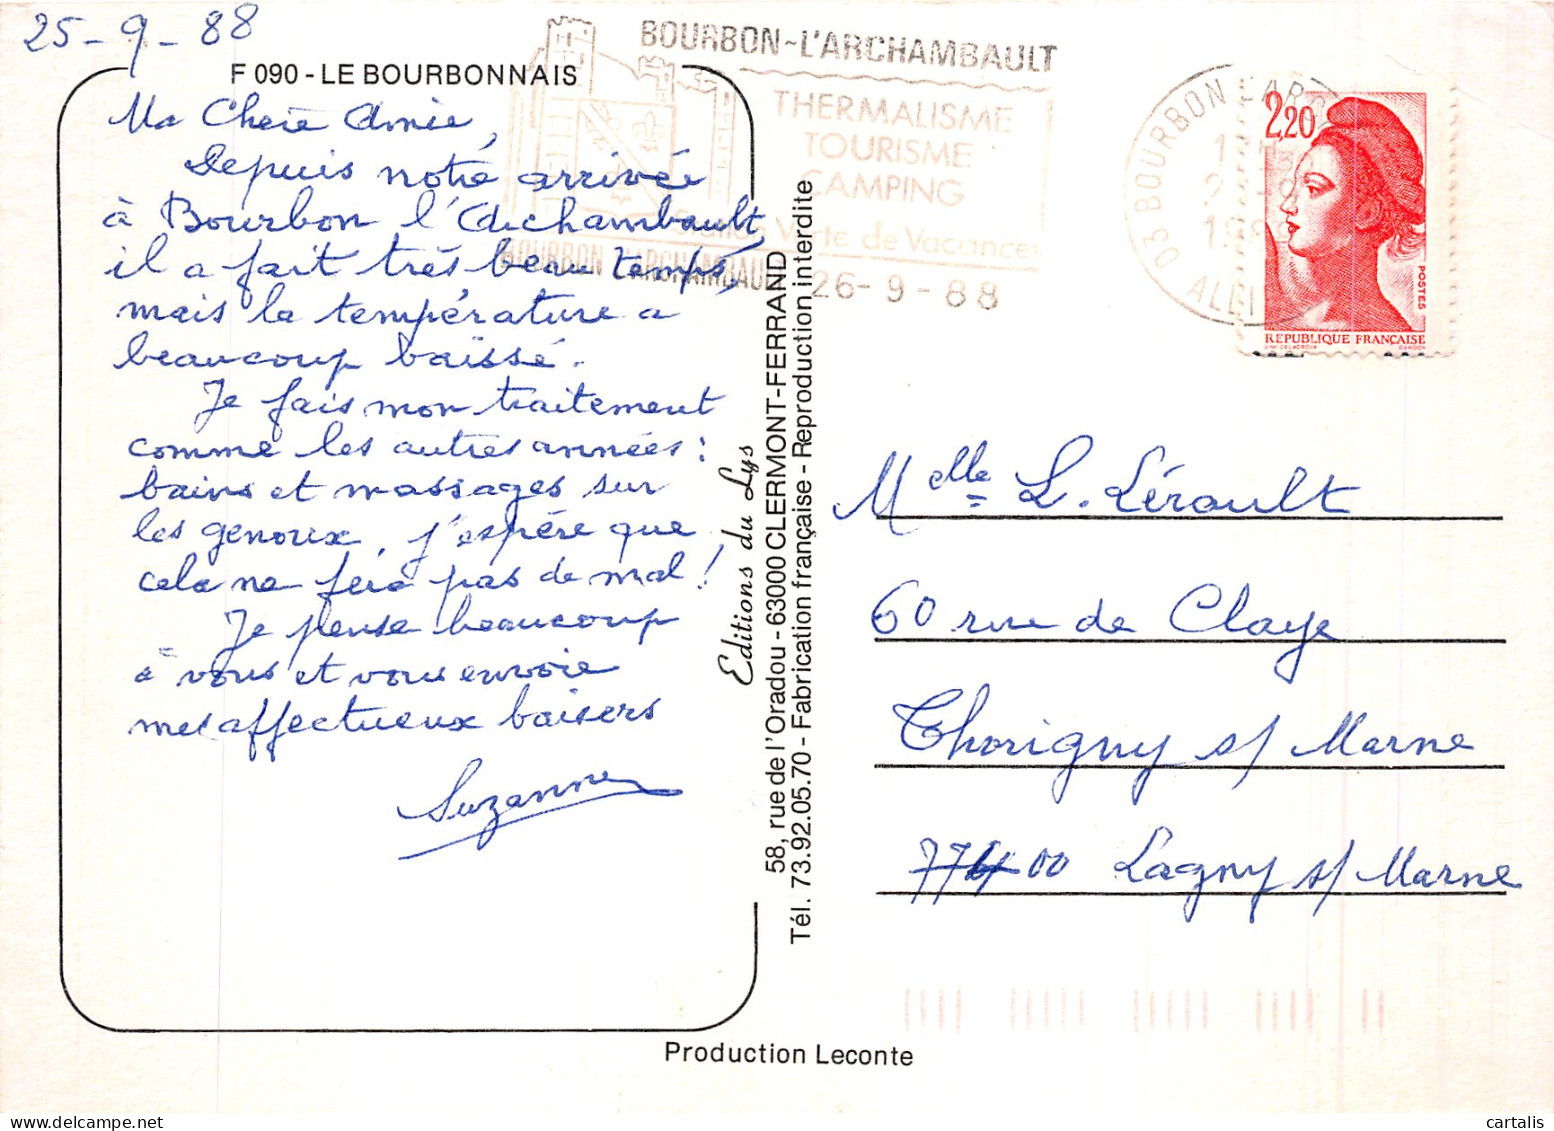 25-9-88
F 090 - LE BOURBONNAIS
Ma Chère Amie,
Depuis notre arrivée
à Bourbon l'Archambault,
il a fait très beau temps,
mais la température a
beaucoup baissé.
Je fais mon traitement
comme les autres années :
bains et massages sur
les genoux, j'espère que
cela ne fera pas de mal !
Je pense beaucoup
à vous et vous envoie
mes affectueux baisers
Suzanne
BOURBON-L'ARCHAMBAULT
THERMALISME
TOURISME
CAMPING
Station Verte de Vacances
BOURBON L'ARCHAMBAULT 26-9-88
03 BOURBON L'ARCH
1988
ALLIER
2,20
POSTES
REPUBLIQUE FRANÇAISE
D'AP. DELACROIX GANDON
Editions du Lys
58, rue de l'Oradou - 63000 CLERMONT-FERRAND
Tél. 73.92.05.70 - Fabrication française - Reproduction interdite
Melle L. Lérault
60 rue de Claye
Thorigny s/ Marne
77400 Lagny s/ Marne
Production Leconte
cartalis